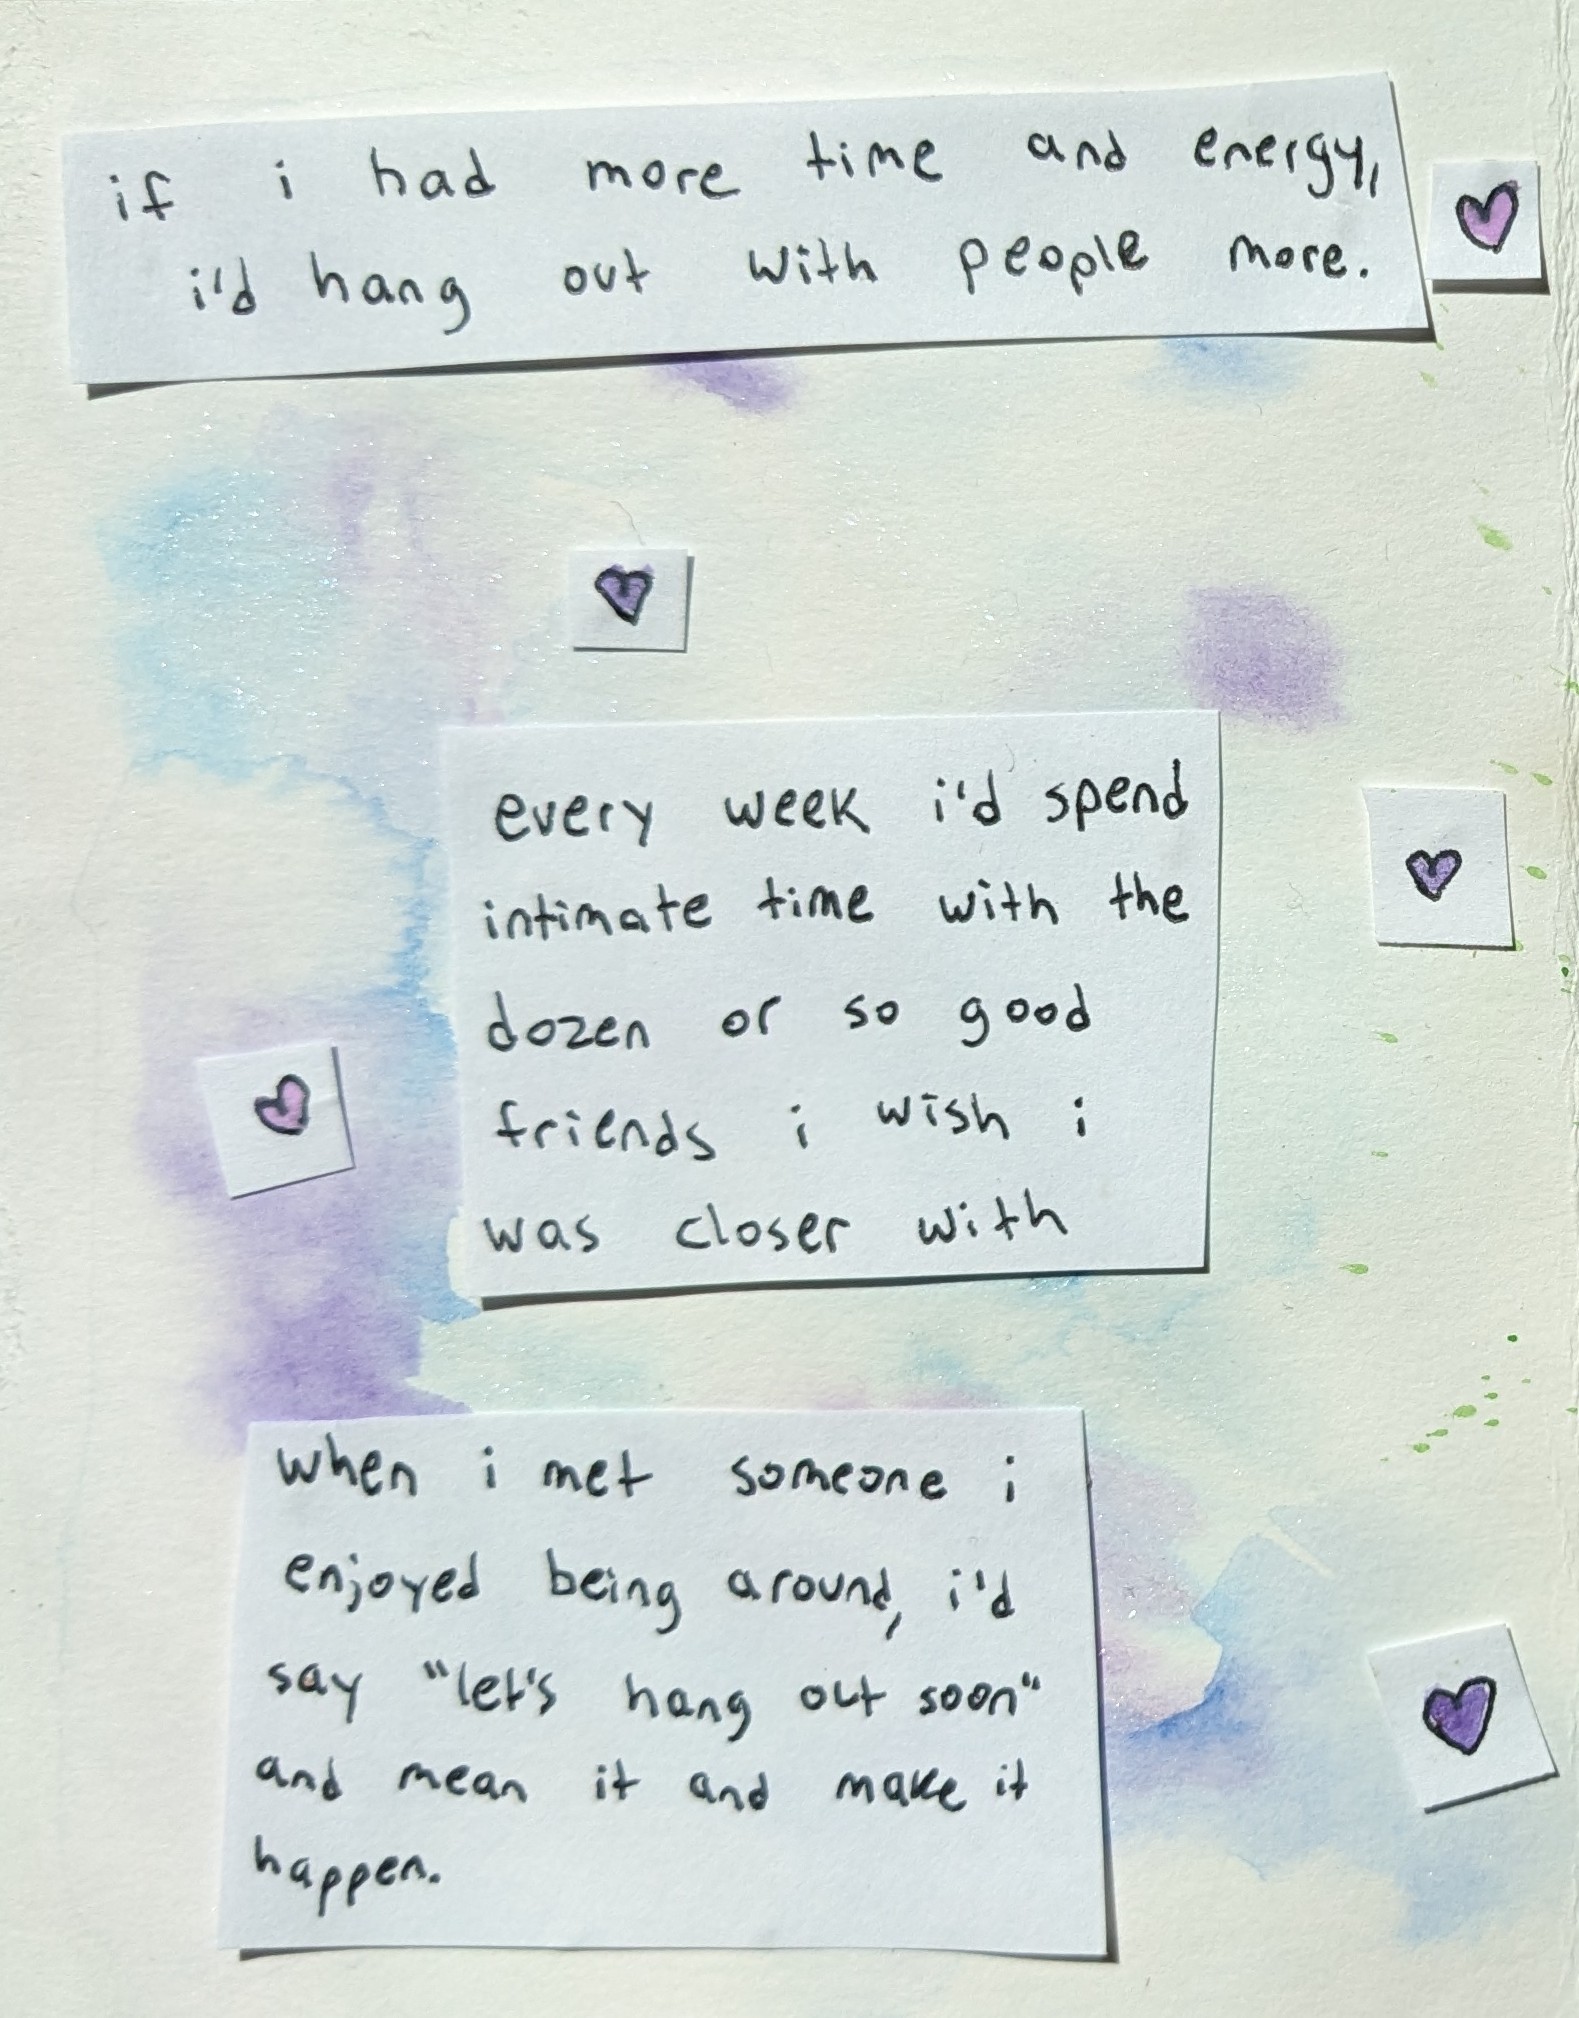 if i had more time and energy,
i'd hang out with people more.
every week i'd spend
intimate time with the
dozen or so good
friends i wish i
was closer with
when i met someone i
enjoyed being around, i'd
say "let's hang out soon"
and mean it and make it
happen.